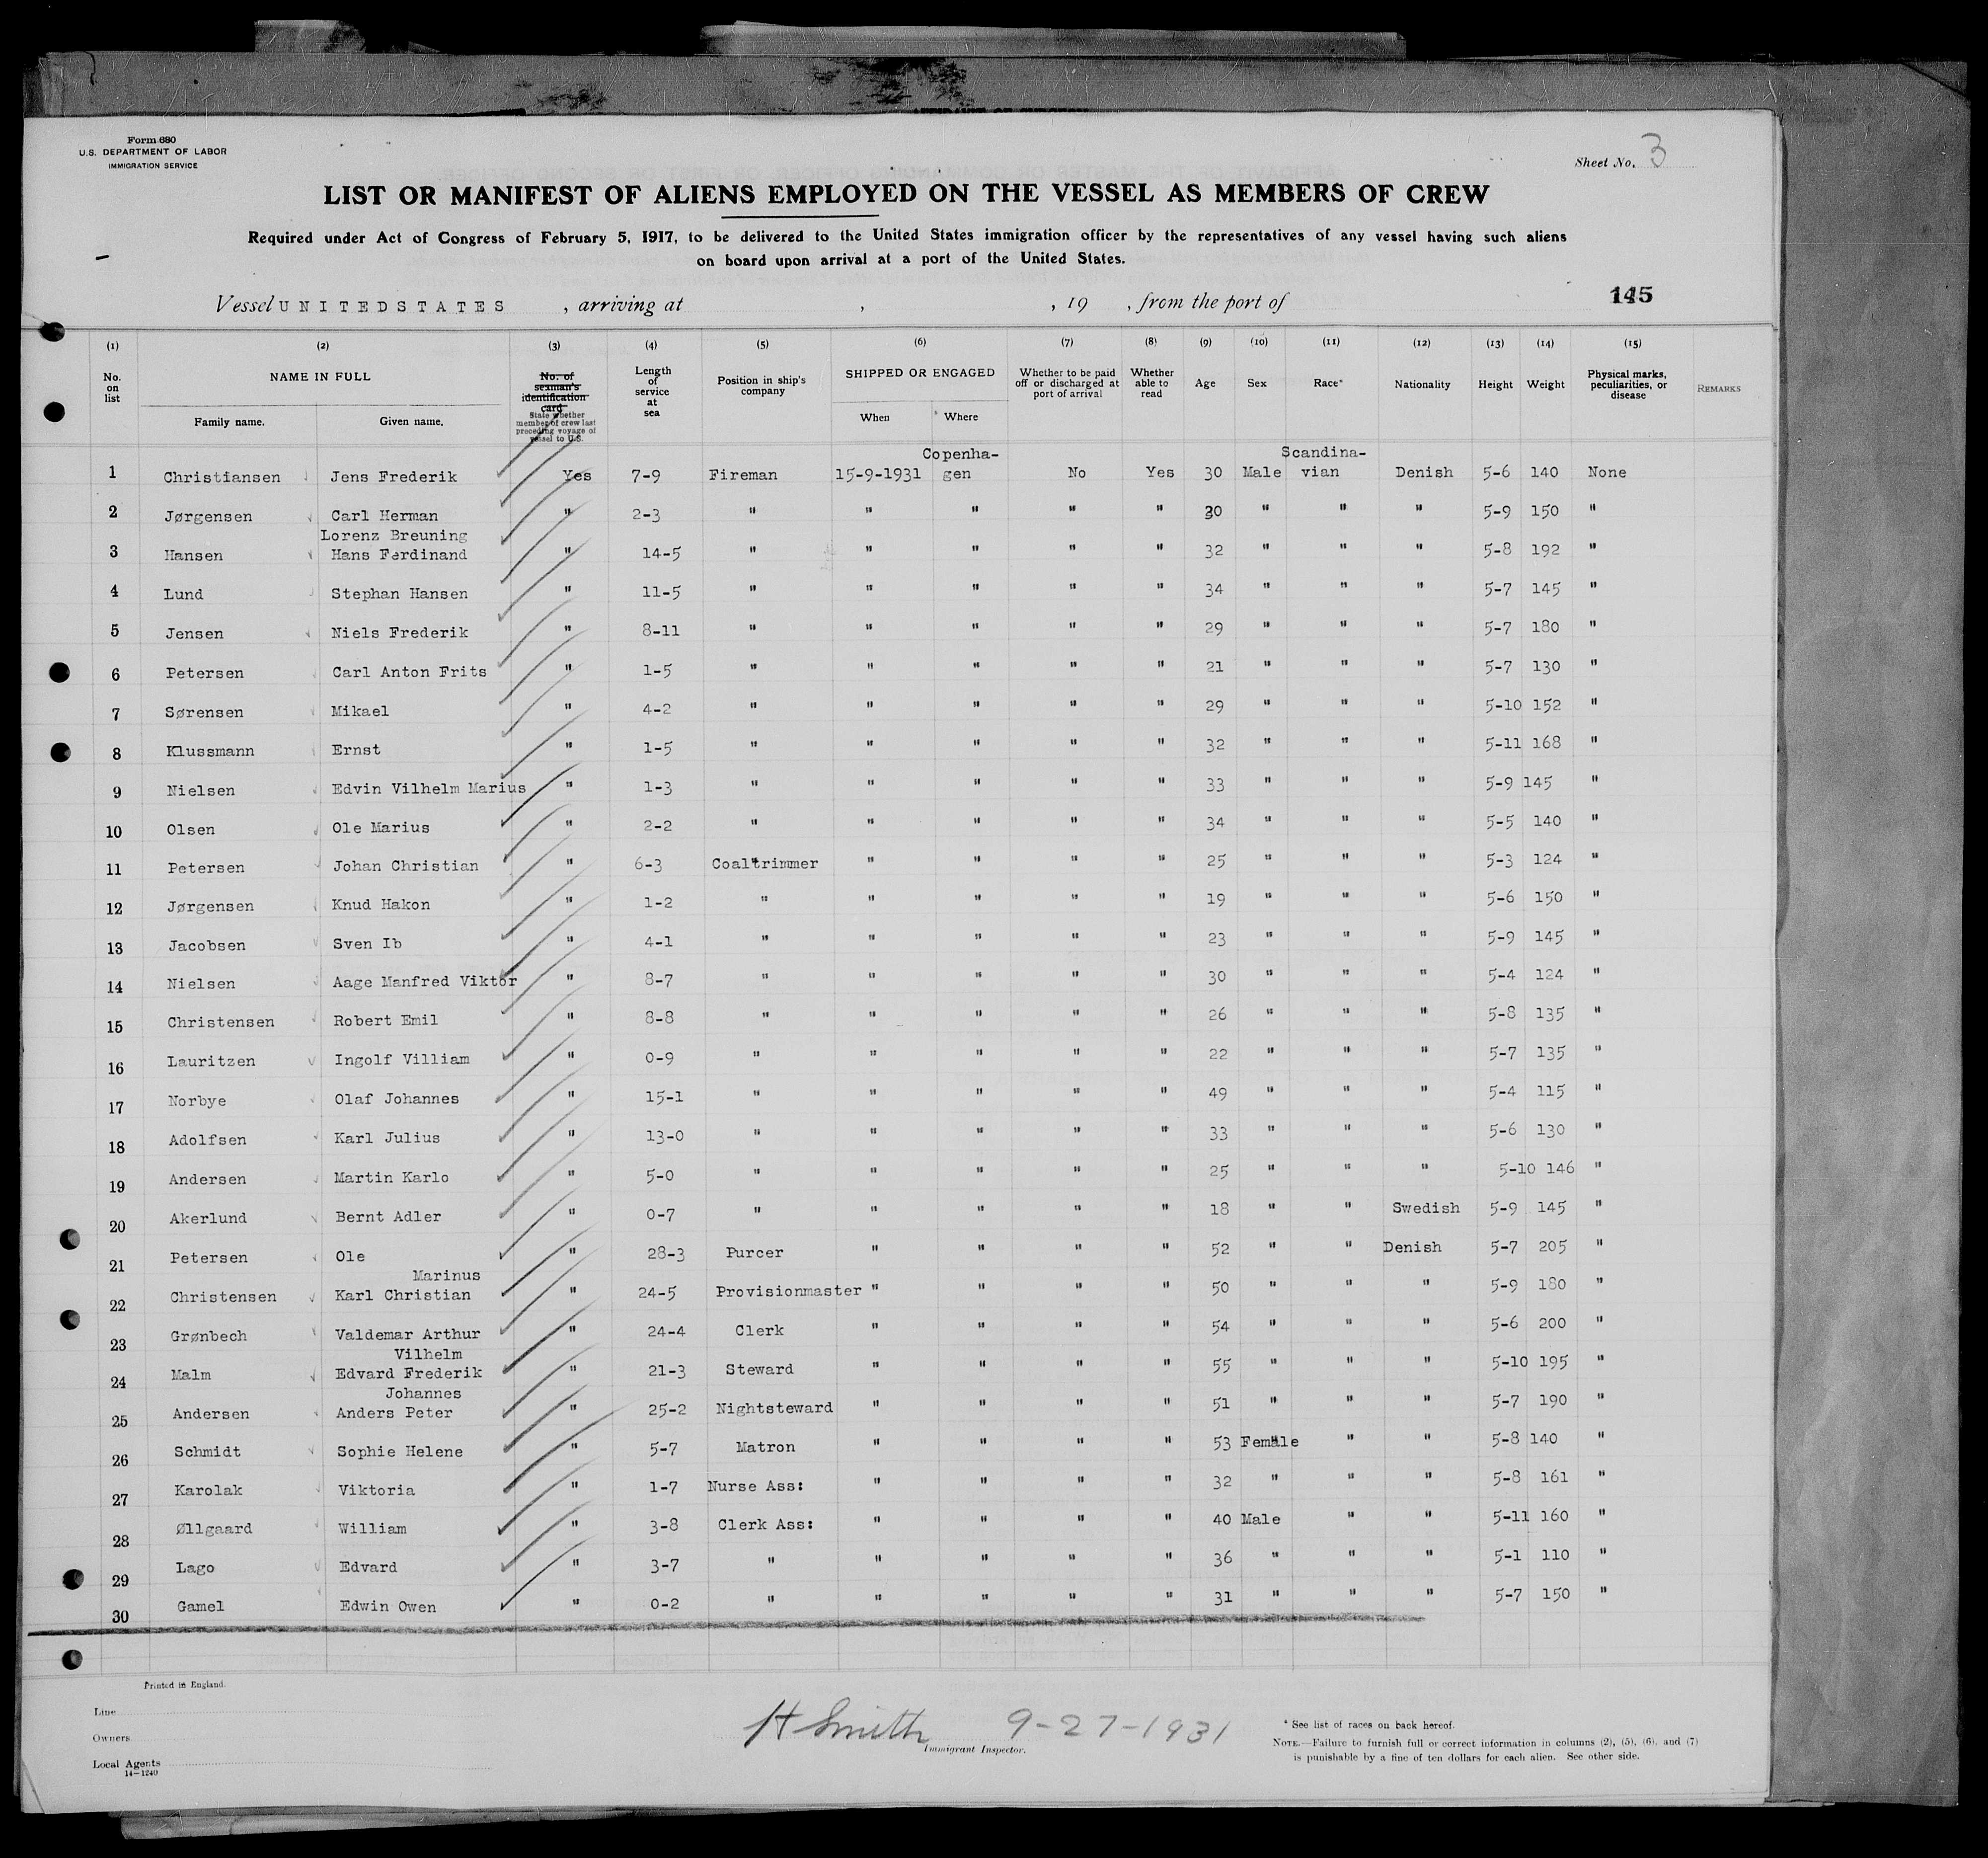 Form 680
U.S. DEPARTMENT OF LABOR
IMMIGRATION SERVICE
Sheet No. 3
LIST OR MANIFEST OF ALIENS EMPLOYED ON THE VESSEL AS MEMBERS OF CREW
Required under Act of Congress of February 5, 1917, to be delivered to the United States immigration officer by the representatives of any vessel having such aliens
on board upon arrival at a port of the United States.
Vessel UNITED STATES , arriving at , , 19 , from the port of
145
(1) (2) (3) (4) (5) (6) (7) (8) (9) (10) (11) (12) (13) (14) (15)
No. on list NAME IN FULL Family name. Given name. No. of seaman's identification card State whether member of crew last preceding voyage of vessel to U.S. Length of service at sea Position in ship's company SHIPPED OR ENGAGED When Where Whether to be paid off or discharged at port of arrival Whether able to read Age Sex Race* Nationality Height Weight Physical marks, peculiarities, or disease REMARKS
1 Christiansen Jens Frederik Yes 7-9 Fireman 15-9-1931 Copenha-gen No Yes 30 Male Scandina-vian Denish 5-6 140 None
2 Jørgensen Carl Herman " 2-3 " " " " " 30 " " " 5-9 150 "
3 Hansen Lorenz Breuning Hans Ferdinand " 14-5 " " " " " 32 " " " 5-8 192 "
4 Lund Stephan Hansen " 11-5 " " " " " 34 " " " 5-7 145 "
5 Jensen Niels Frederik " 8-11 " " " " " 29 " " " 5-7 180 "
6 Petersen Carl Anton Frits " 1-5 " " " " " 21 " " " 5-7 130 "
7 Sørensen Mikael " 4-2 " " " " " 29 " " " 5-10 152 "
8 Klussmann Ernst " 1-5 " " " " " 32 " " " 5-11 168 "
9 Nielsen Edvin Vilhelm Marius " 1-3 " " " " " 33 " " " 5-9 145 "
10 Olsen Ole Marius " 2-2 " " " " " 34 " " " 5-5 140 "
11 Petersen Johan Christian " 6-3 Coaltrimmer " " " " 25 " " " 5-3 124 "
12 Jørgensen Knud Hakon " 1-2 " " " " " 19 " " " 5-6 150 "
13 Jacobsen Sven Ib " 4-1 " " " " " 23 " " " 5-9 145 "
14 Nielsen Aage Manfred Viktor " 8-7 " " " " " 30 " " " 5-4 124 "
15 Christensen Robert Emil " 8-8 " " " " " 26 " " " 5-8 135 "
16 Lauritzen Ingolf Villiam " 0-9 " " " " " 22 " " " 5-7 135 "
17 Norbye Olaf Johannes " 15-1 " " " " " 49 " " " 5-4 115 "
18 Adolfsen Karl Julius " 13-0 " " " " " 33 " " " 5-6 130 "
19 Andersen Martin Karlo " 5-0 " " " " " 25 " " " 5-10 146 "
20 Akerlund Bernt Adler " 0-7 " " " " " 18 " " Swedish 5-9 145 "
21 Petersen Ole " 28-3 Purcer " " " " 52 " " Denish 5-7 205 "
22 Christensen Marinus Karl Christian " 24-5 Provisionmaster " " " " 50 " " " 5-9 180 "
23 Grønbech Valdemar Arthur " 24-4 Clerk " " " " 54 " " " 5-6 200 "
24 Malm Vilhelm Edvard Frederik " 21-3 Steward " " " " 55 " " " 5-10 195 "
25 Andersen Johannes Anders Peter " 25-2 Nightsteward " " " " 51 " " " 5-7 190 "
26 Schmidt Sophie Helene " 5-7 Matron " " " " 53 Female " " 5-8 140 "
27 Karolak Viktoria " 1-7 Nurse Ass: " " " " 32 " " " 5-8 161 "
28 Øllgaard William " 3-8 Clerk Ass: " " " " 40 Male " " 5-11 160 "
29 Lago Edvard " 3-7 " " " " " 36 " " " 5-1 110 "
30 Gamel Edwin Owen " 0-2 " " " " " 31 " " " 5-7 150 "
Printed in England.
Line
Owners
Local Agents
14-1240
H Smith 9-27-1931
Immigrant Inspector.
* See list of races on back hereof.
NOTE.—Failure to furnish full or correct information in columns (2), (5), (6), and (7)
is punishable by a fine of ten dollars for each alien. See other side.